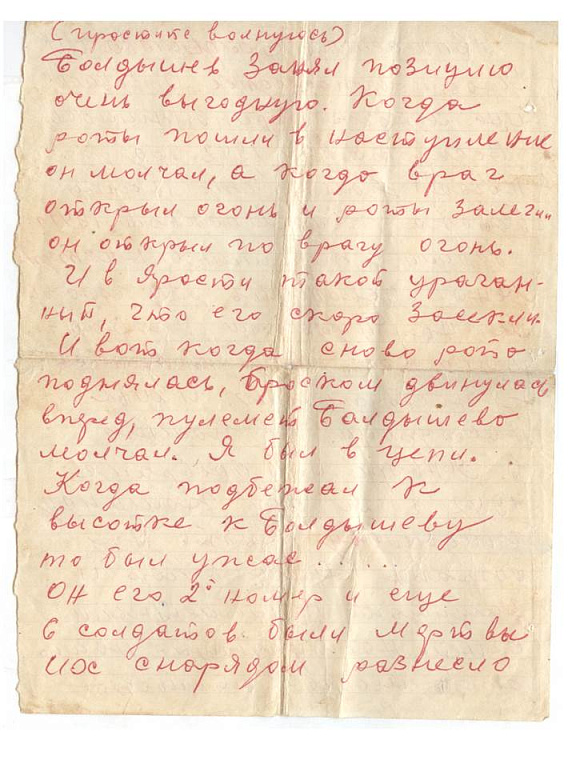 (простите волнуюсь)
Болдышев занял позицию
очень выгодную. Когда
роты пошли в наступление
он молчал, а когда враг
открыл огонь и роты залегли
он открыл по врагу огонь.
И в ярости такой ураган-
ный, что его скоро засекли.
И вот когда снова рота
поднялась, броском двинулась
вперед, пулемет Болдышева
молчал. Я был в цепи.
Когда подбежал к
высотке к Болдышеву
то был ужас......
Он его 2й номер и еще
6 солдатов были мертвы
снарядом разнесло